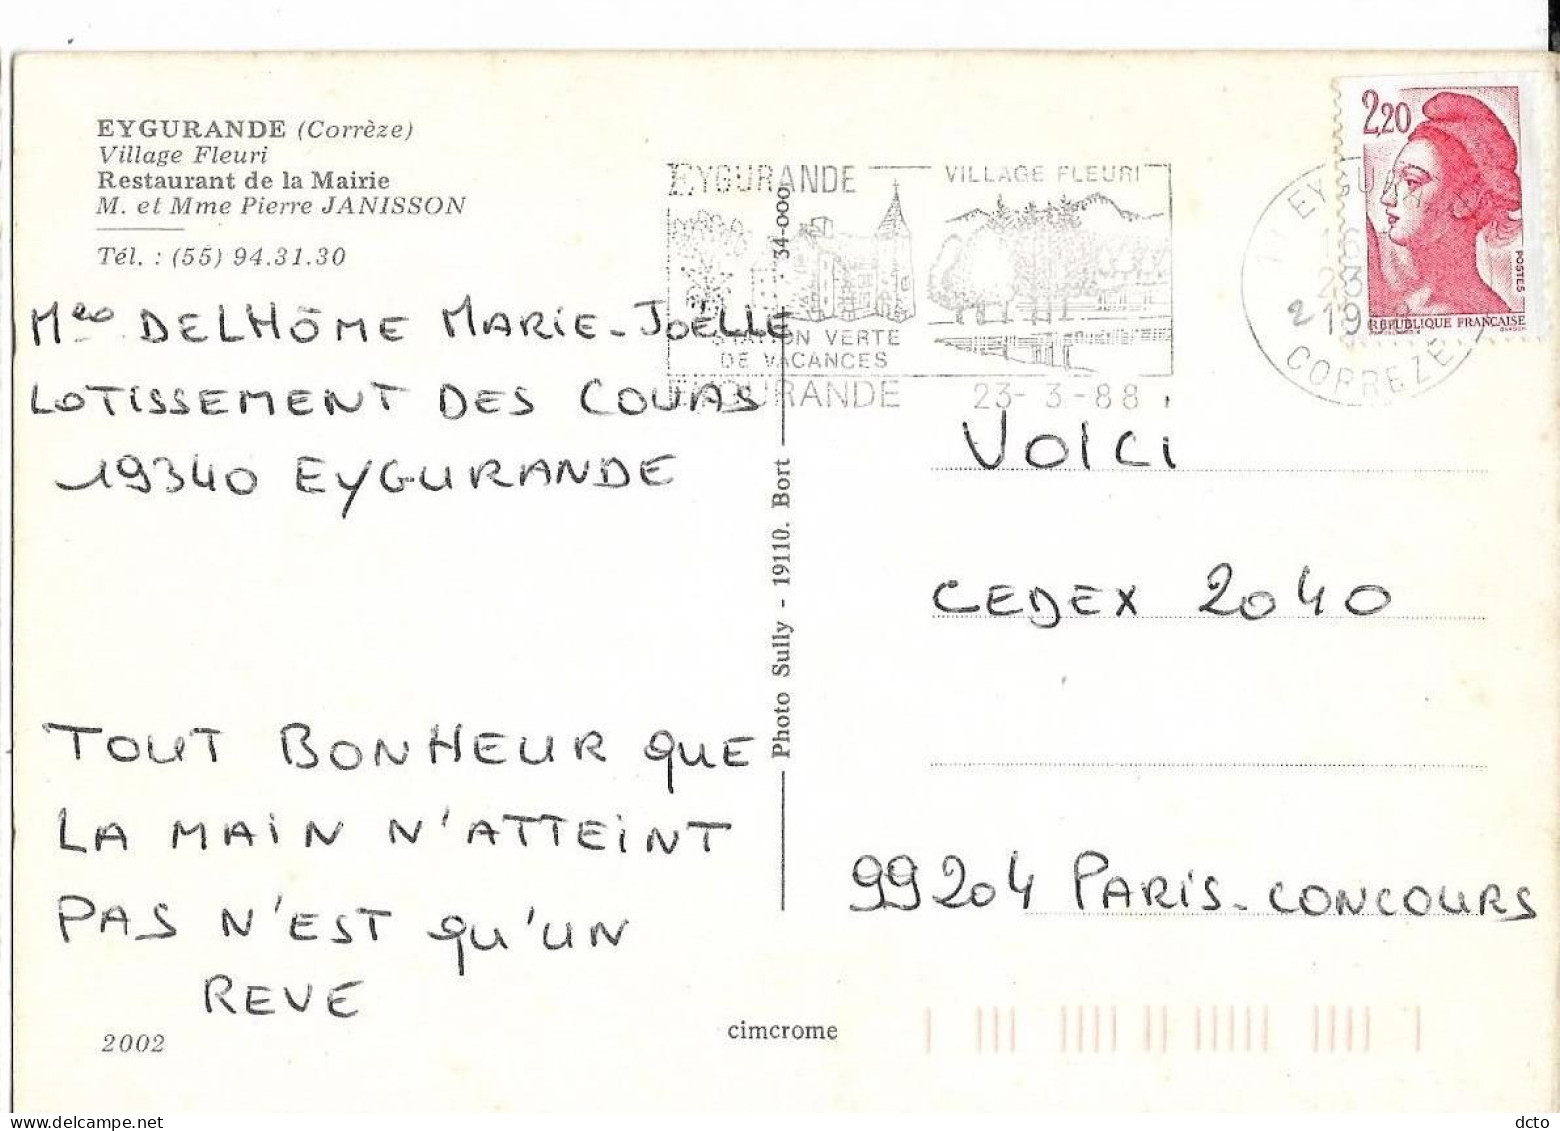 EYGURANDE (Corrèze)
Village Fleuri
Restaurant de la Mairie
M. et Mme Pierre JANISSON
Tél. : (55) 94.31.30
DELHÔME MARIE-JOËLLE
LOTISSEMENT DES COUAS
19340 EYGURANDE
TOUT BONHEUR QUE
LA MAIN N'ATTEINT
PAS N'EST QU'UN
REVE
2002
cimcrome
Photo Sully - 19110. Bort
34-000
EYGURANDE
VILLAGE FLEURI
STATION VERTE
DE VACANCES
EYGURANDE 23-3-88
2,20
POSTES
REPUBLIQUE FRANCAISE
CORREZE
VOICI
CEDEX 2040
99204 PARIS-CONCOURS
dcto